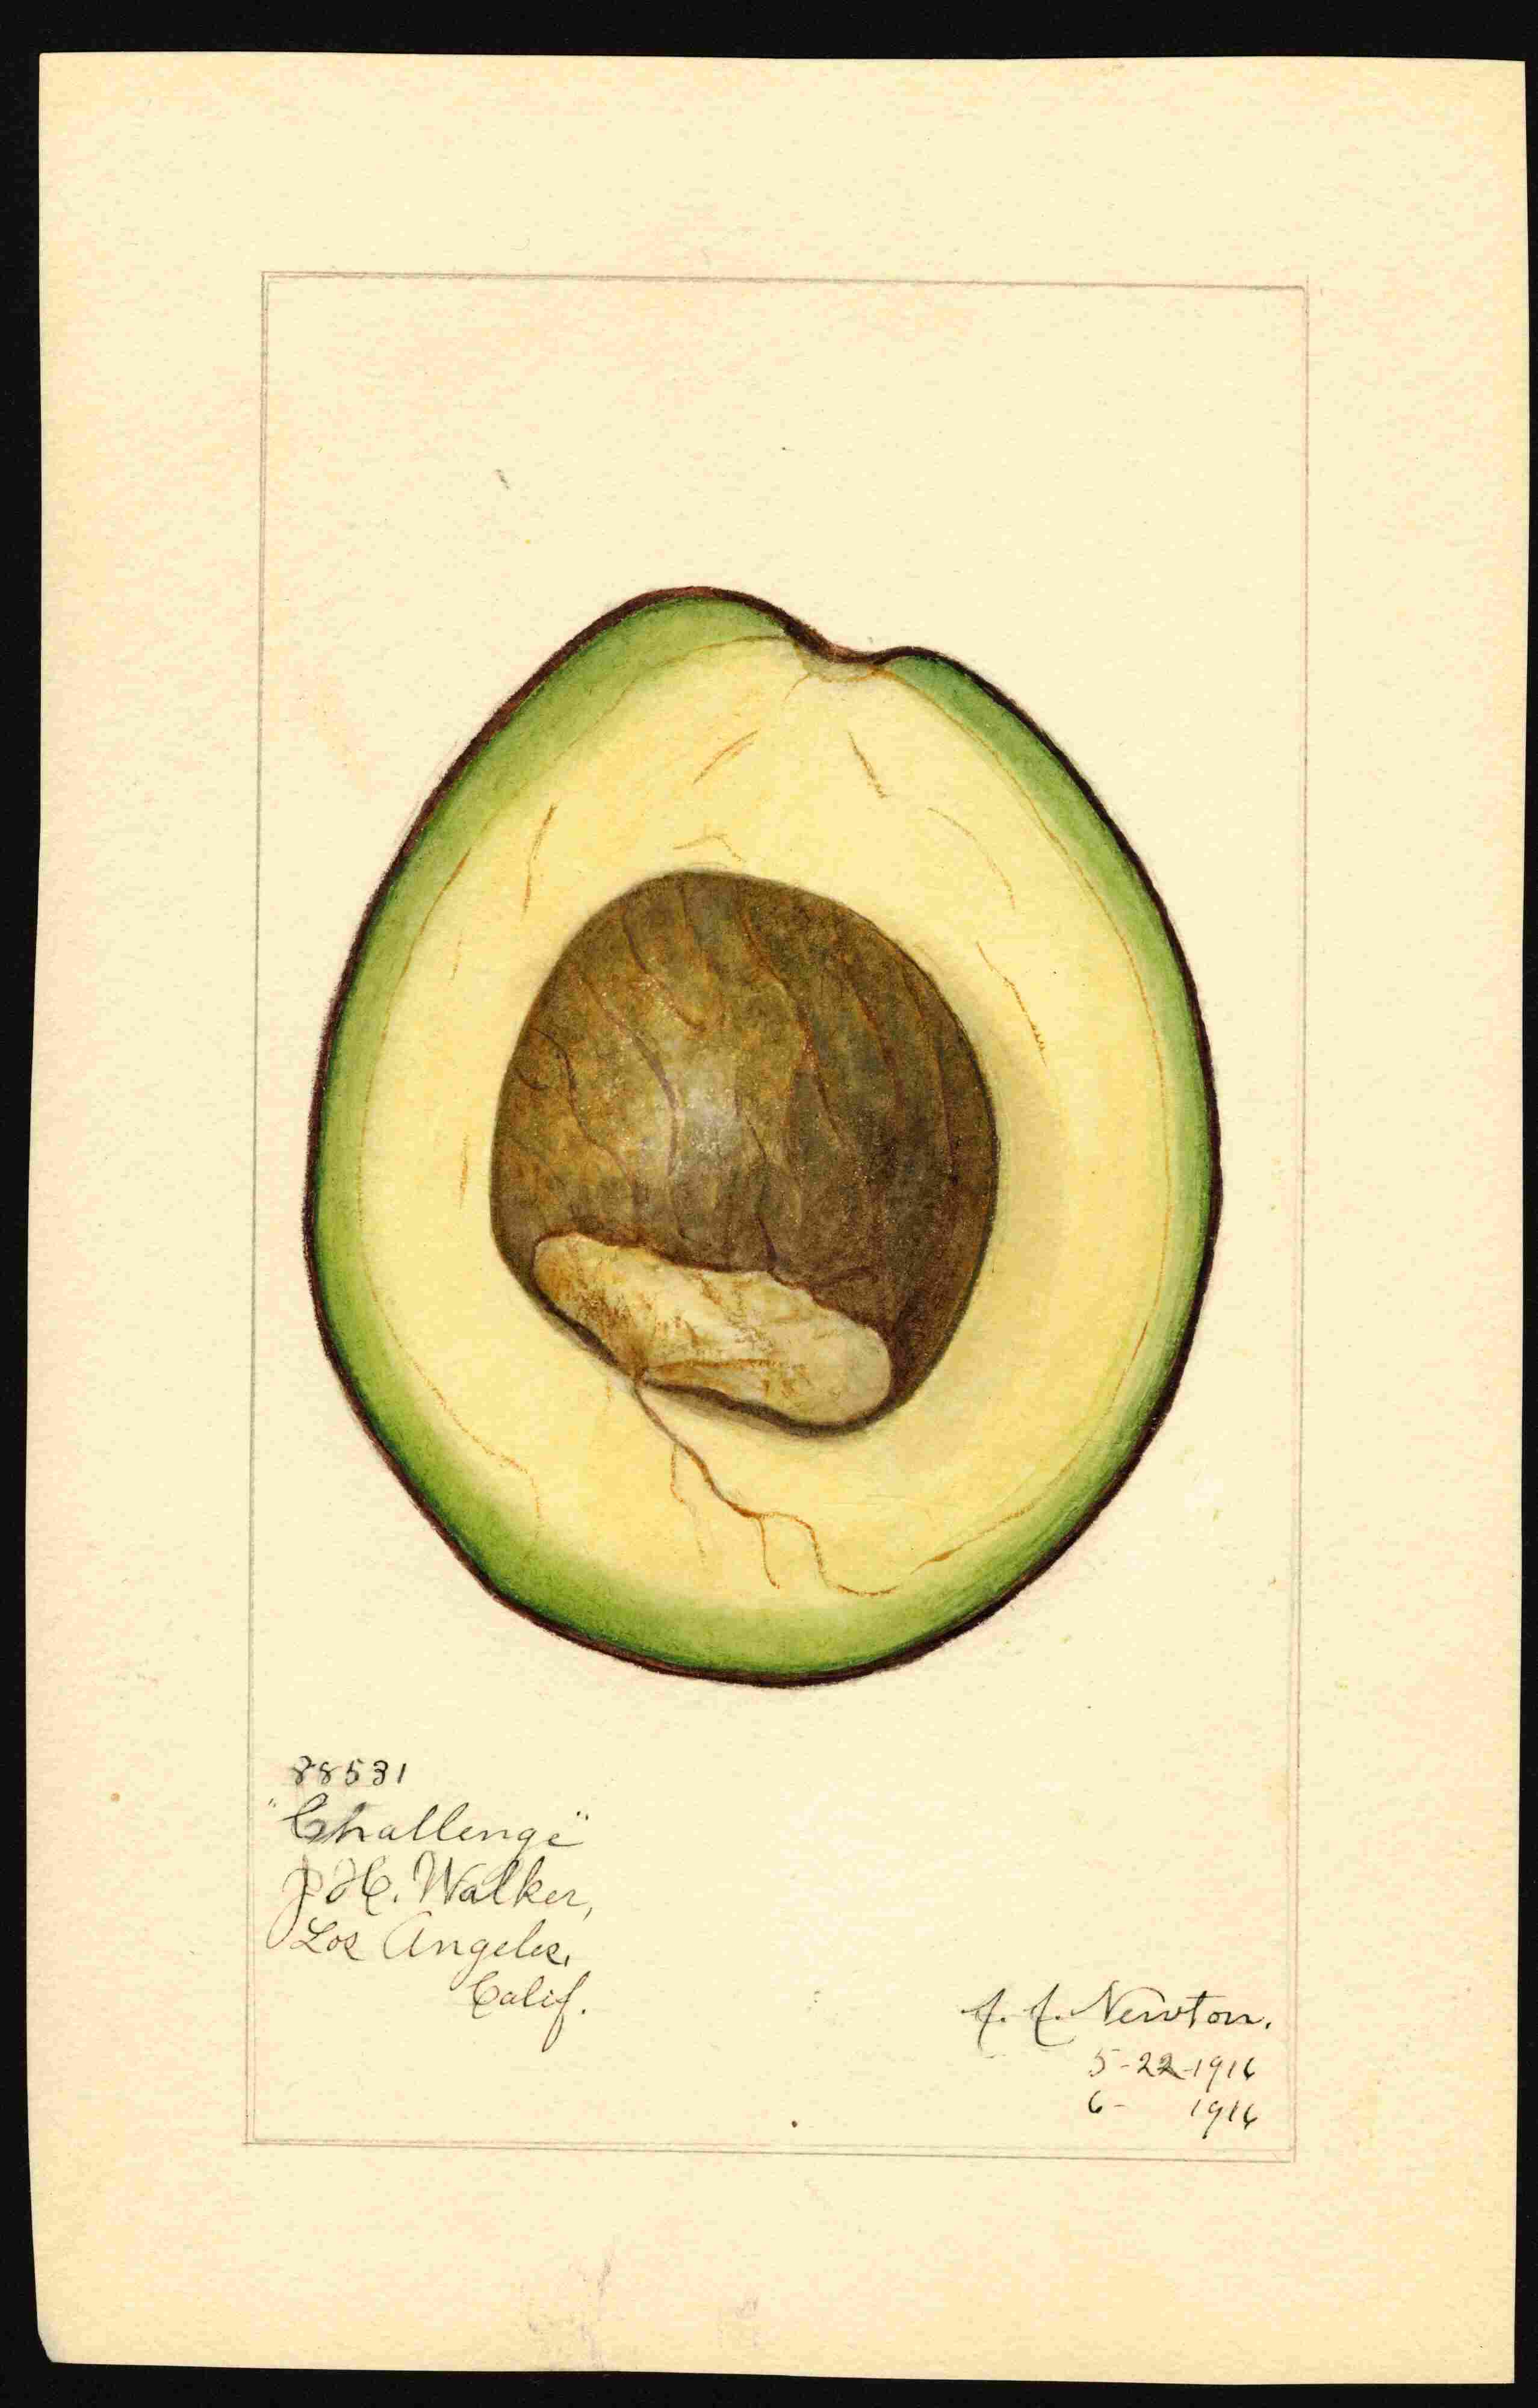 88531
"Challenge"
J. H. Walker,
Los Angeles,
Calif.
A. A. Newton.
5-22-1916
6- 1916